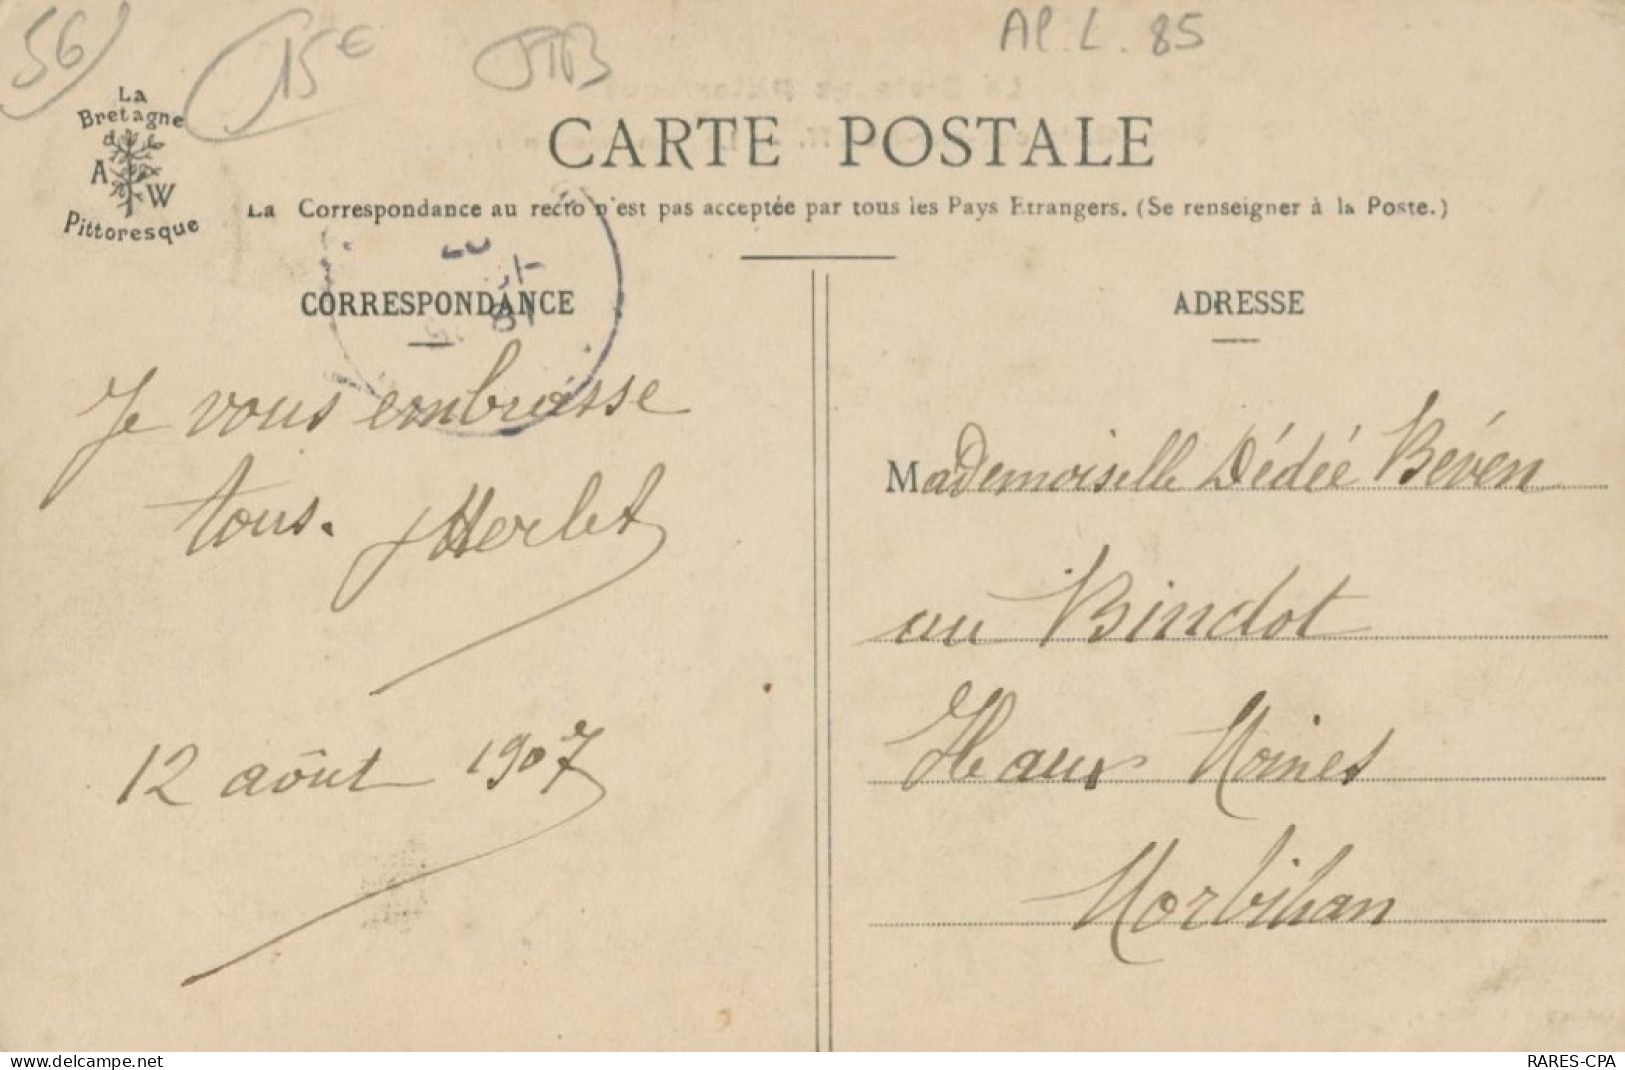 56
15€
AP.L.85
La
Bretagne
A W
Pittoresque
CARTE POSTALE
La Correspondance au recto n'est pas acceptée par tous les Pays Etrangers. (Se renseigner à la Poste.)
CORRESPONDANCE
Je vous embrasse
tous. JHerlet
12 août 1907
ADRESSE
Mademoiselle Dédée Béven
au Bindot
Ile aux Moines
Morbihan
delcampe.net
RARES-CPA